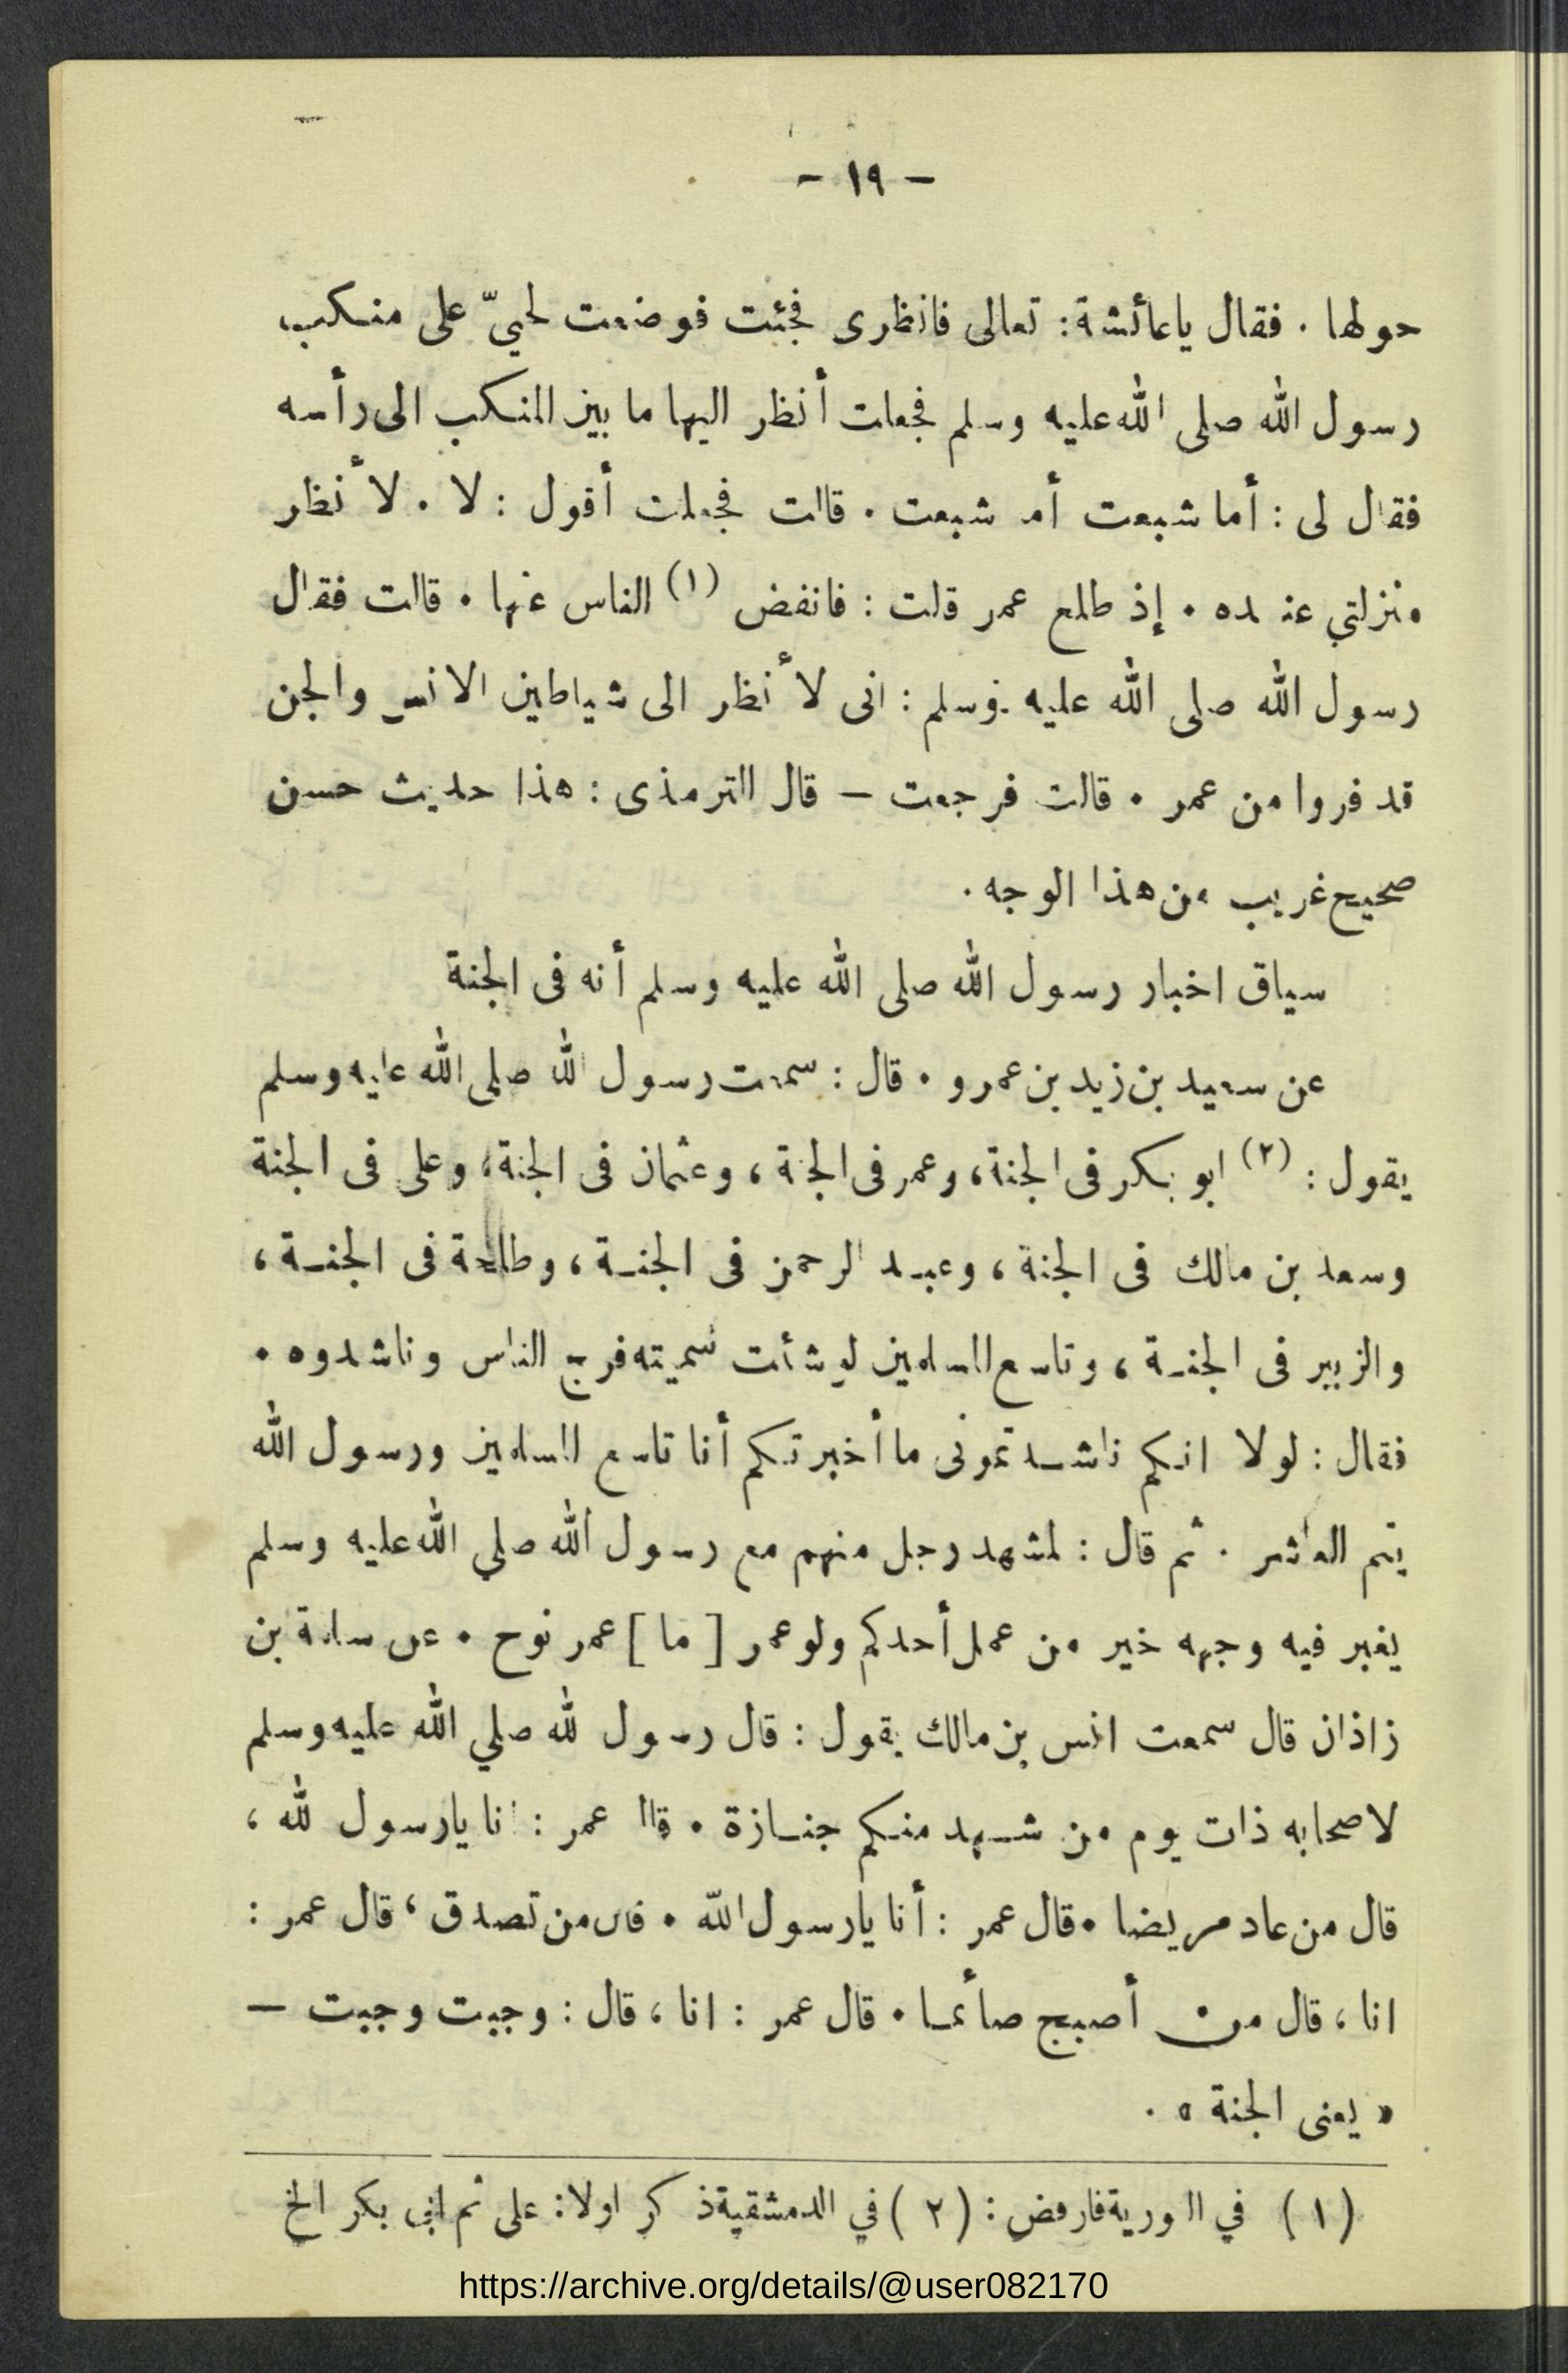 - ١٩ -
حولها . فقال ياعائشة : تعالى فانظرى فجئت فوضعت لحيىّ على منكب
رسول الله صلى الله عليه وسلم فجعلت أنظر اليها ما بين المنكب الى رأسه
فقال لى : أما شبعت أما شبعت . قالت فجعلت أقول : لا . لأنظر
منزلتي عنده . إذ طلع عمر قلت : فانفض (١) الناس عنها . قالت فقال
رسول الله صلى الله عليه وسلم : انى لأنظر الى شياطين الانس والجن
قد فروا من عمر . قالت فرجعت — قال الترمذى : هذا حديث حسن
صحيح غريب من هذا الوجه .
سياق اخبار رسول الله صلى الله عليه وسلم أنه فى الجنة
عن سعيد بن زيد بن عمرو . قال : سمعت رسول الله صلى الله عليه وسلم
يقول : (٢) ابو بكر فى الجنة ، وعمر فى الجنة ، وعثمان فى الجنة ، وعلى فى الجنة
وسعد بن مالك فى الجنة ، وعبد الرحمن فى الجنة ، وطلحة فى الجنة ،
والزبير فى الجنة ، وتاسع المسلمين لو شئت سميته فرج الناس وناشدوه .
فقال : لولا انكم ناشدتمونى ما أخبرتكم أنا تاسع المسلمين ورسول الله
يتم العاشر . ثم قال : لمشهد رجل منهم مع رسول الله صلي الله عليه وسلم
يغبر فيه وجهه خير من عمل أحدكم ولو عمر [ ما ] عمر نوح . عن سلمة بن
زاذان قال سمعت انس بن مالك يقول : قال رسول الله صلي الله عليه وسلم
لاصحابه ذات يوم من شهد منكم جنازة . قال عمر : انا يارسول الله ،
قال من عاد مريضا . قال عمر : أنا يارسول الله . قال من تصدق ، قال عمر :
انا ، قال من أصبح صائما . قال عمر : انا ، قال : وجبت وجبت —
« يعنى الجنة » .
(١) في النورية فارفض : (٢) في الدمشقية ذكر اولا : على ثم ابي بكر الخ
https://archive.org/details/@user082170